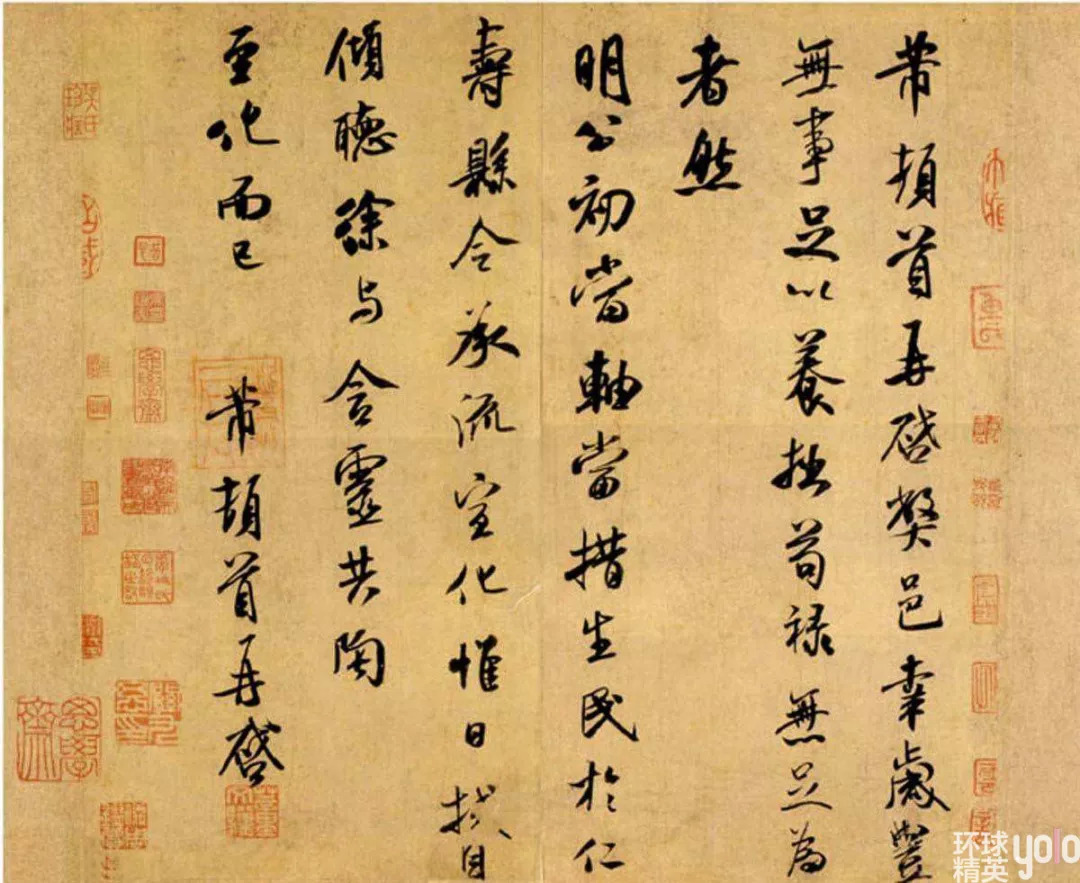 芾頓首再啓弊邑幸歲豐
無事足以養拙苟禄無足為
者然
明公初當軸當措生民於仁
壽縣令承流宣化惟日拭目
傾聽徐与含靈共陶
至化而已 芾頓首再啓
环球
精英
yolo